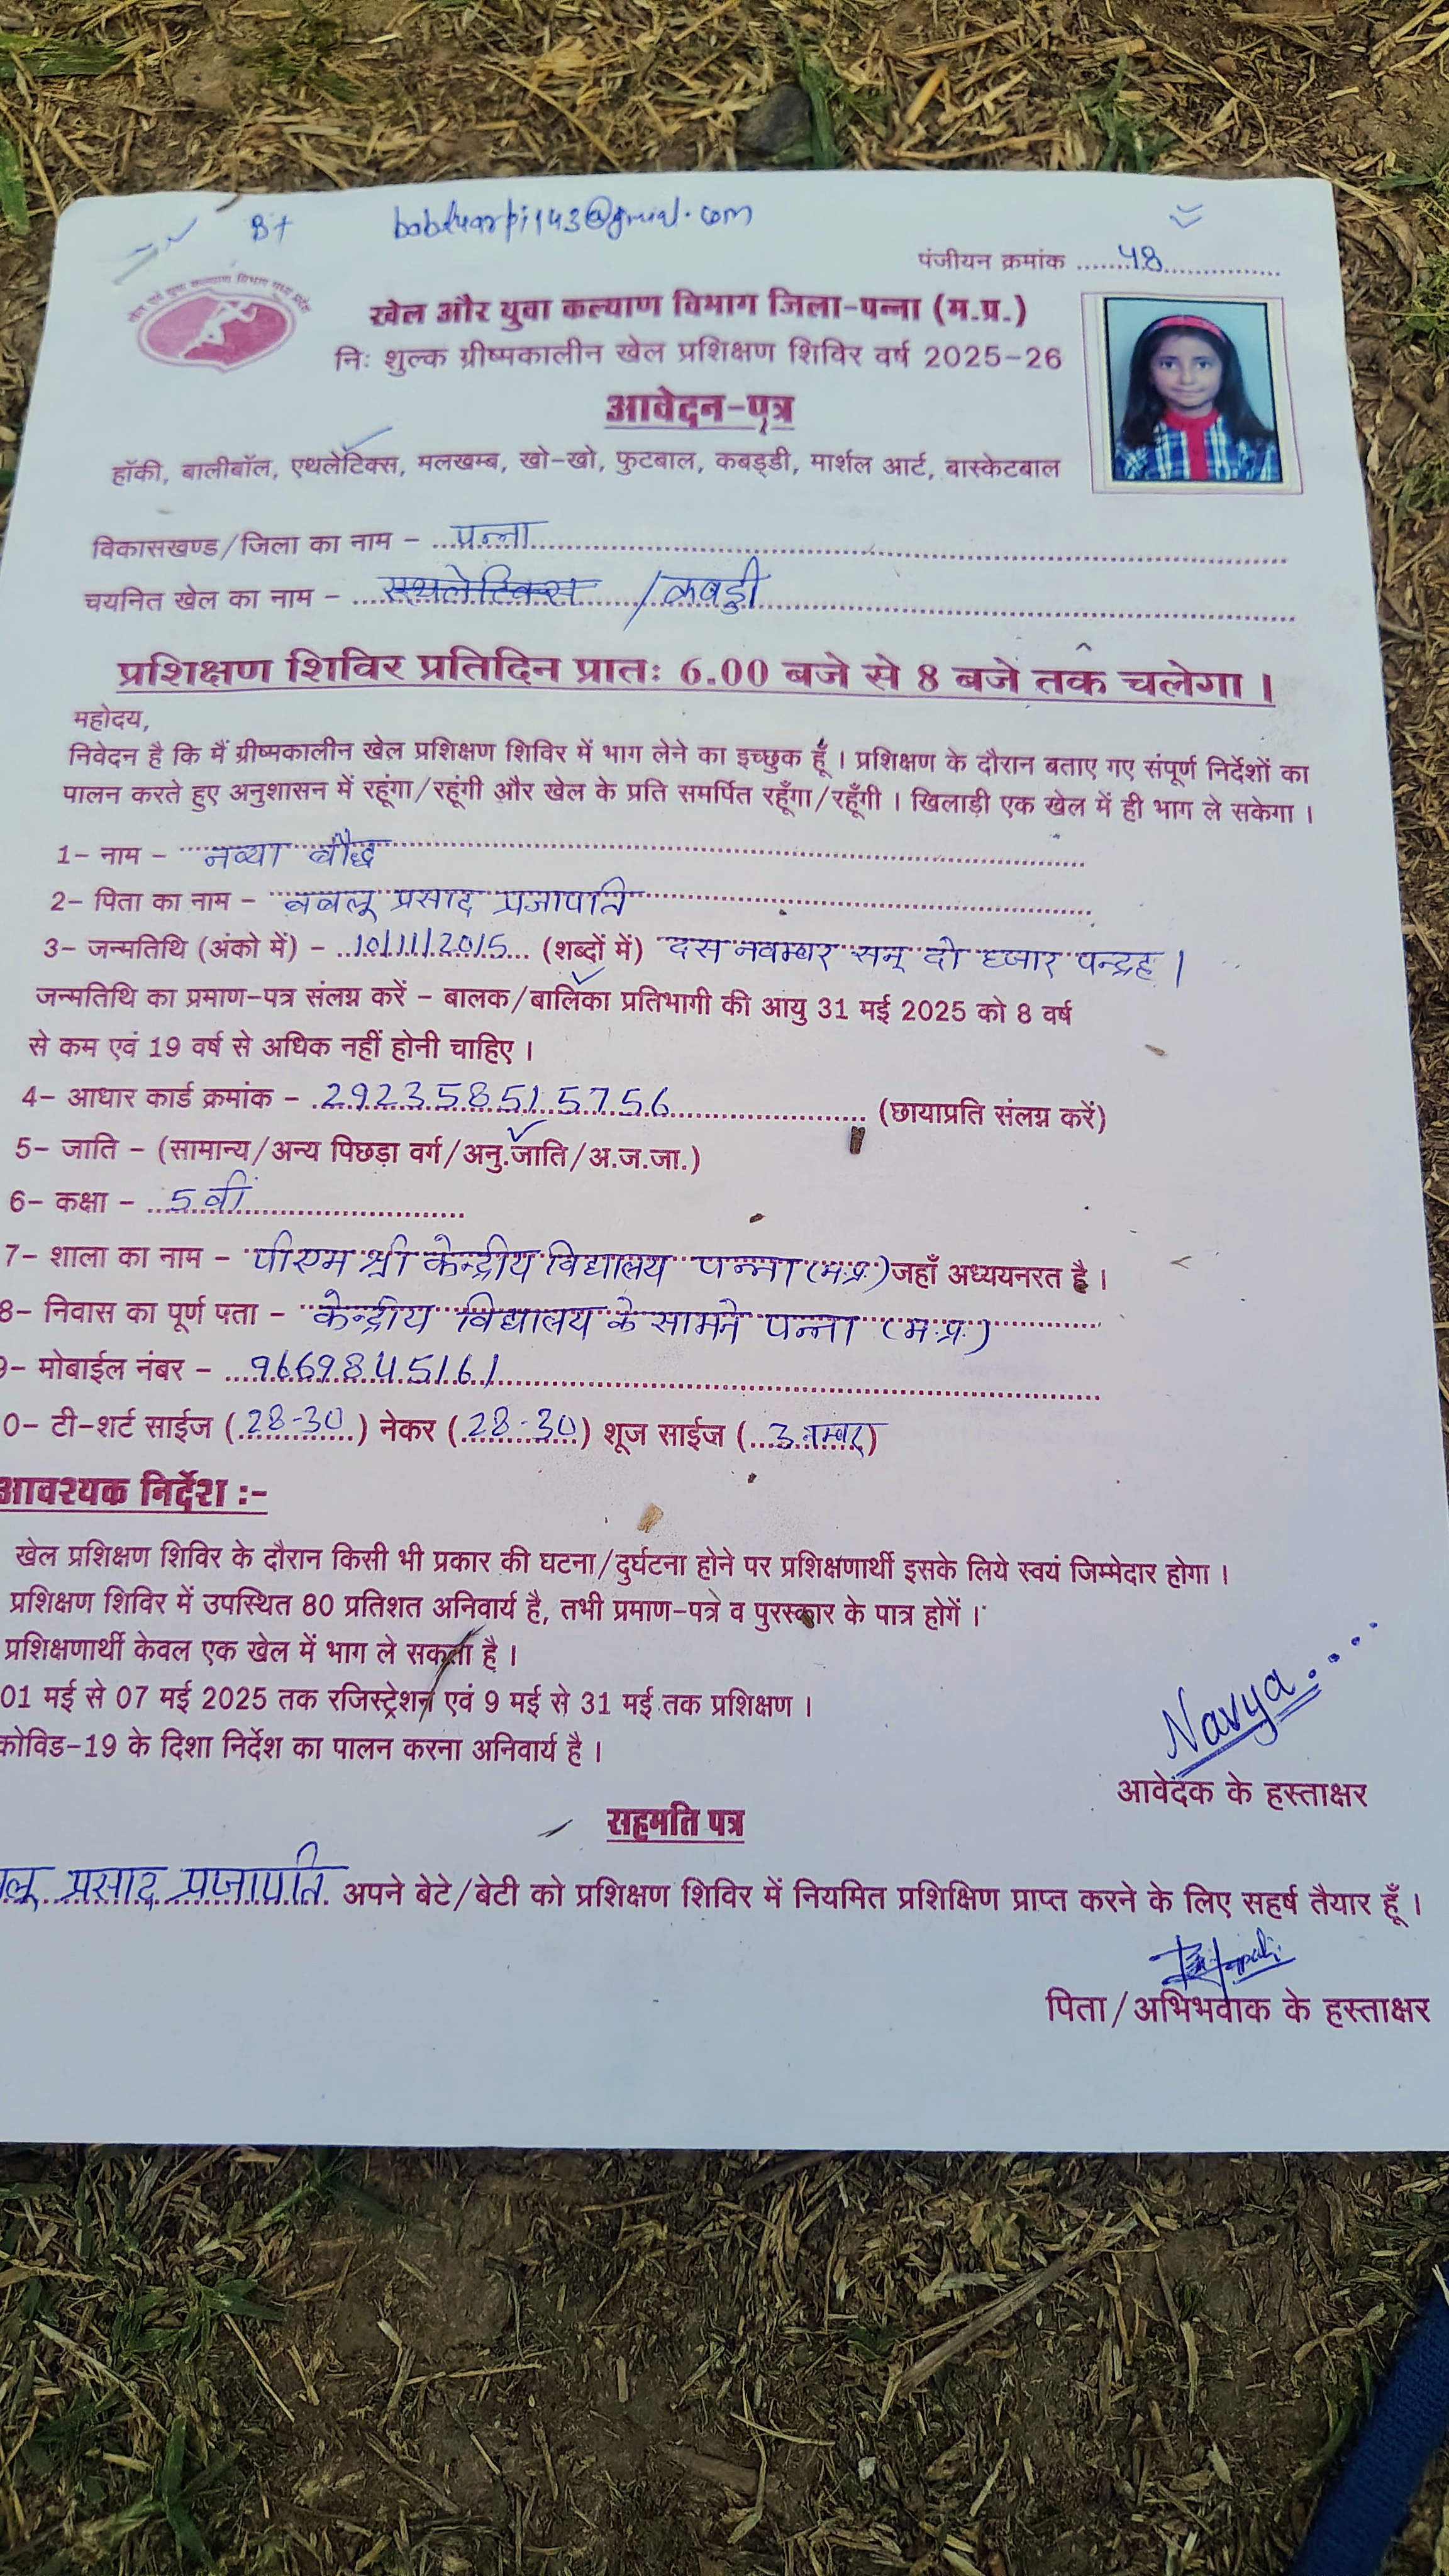 B+
पंजीयन क्रमांक ........48................
खेल एवं युवा कल्याण विभाग मध्य प्रदेश
खेल और युवा कल्याण विभाग जिला-पन्ना (म.प्र.)
नि: शुल्क ग्रीष्मकालीन खेल प्रशिक्षण शिविर वर्ष 2025-26
आवेदन-पत्र
हॉकी, बालीबॉल, एथलेटिक्स, मलखम्ब, खो-खो, फुटबाल, कबड्डी, मार्शल आर्ट, बास्केटबाल
विकासखण्ड/जिला का नाम - पन्ना
चयनित खेल का नाम - एथलेटिक्स / कबड्डी
प्रशिक्षण शिविर प्रतिदिन प्रातः 6.00 बजे से 8 बजे तक चलेगा।
महोदय,
निवेदन है कि मैं ग्रीष्मकालीन खेल प्रशिक्षण शिविर में भाग लेने का इच्छुक हूँ। प्रशिक्षण के दौरान बताए गए संपूर्ण निर्देशों का
पालन करते हुए अनुशासन में रहूंगा/रहूंगी और खेल के प्रति समर्पित रहूँगा/रहूँगी। खिलाड़ी एक खेल में ही भाग ले सकेगा।
1- नाम - नव्या बौद्ध
2- पिता का नाम - बबलू प्रसाद प्रजापति
3- जन्मतिथि (अंको में) - 10/11/2015 (शब्दों में) दस नवम्बर सन् दो हजार पन्द्रह।
जन्मतिथि का प्रमाण-पत्र संलग्न करें - बालक/बालिका प्रतिभागी की आयु 31 मई 2025 को 8 वर्ष
से कम एवं 19 वर्ष से अधिक नहीं होनी चाहिए।
4- आधार कार्ड क्रमांक - 292358515756 (छायाप्रति संलग्न करें)
5- जाति - (सामान्य/अन्य पिछड़ा वर्ग/अनु.जाति/अ.ज.जा.)
6- कक्षा - 5 वीं
7- शाला का नाम - पीएम श्री केन्द्रीय विद्यालय पन्ना (म.प्र.) जहाँ अध्ययनरत है।
8- निवास का पूर्ण पता - केन्द्रीय विद्यालय के सामने पन्ना (म.प्र.)
9- मोबाईल नंबर - 9669845161
0- टी-शर्ट साईज (28-30) नेकर (28-30) शूज साईज (3 नम्बर)
आवश्यक निर्देश :-
खेल प्रशिक्षण शिविर के दौरान किसी भी प्रकार की घटना/दुर्घटना होने पर प्रशिक्षणार्थी इसके लिये स्वयं जिम्मेदार होगा।
प्रशिक्षण शिविर में उपस्थित 80 प्रतिशत अनिवार्य है, तभी प्रमाण-पत्र व पुरस्कार के पात्र होगें।
प्रशिक्षणार्थी केवल एक खेल में भाग ले सकता है।
01 मई से 07 मई 2025 तक रजिस्ट्रेशन एवं 9 मई से 31 मई तक प्रशिक्षण।
कोविड-19 के दिशा निर्देश का पालन करना अनिवार्य है।
Navya....
आवेदक के हस्ताक्षर
सहमति पत्र
लू प्रसाद प्रजापति अपने बेटे/बेटी को प्रशिक्षण शिविर में नियमित प्रशिक्षिण प्राप्त करने के लिए सहर्ष तैयार हूँ।
पिता/अभिभवाक के हस्ताक्षर